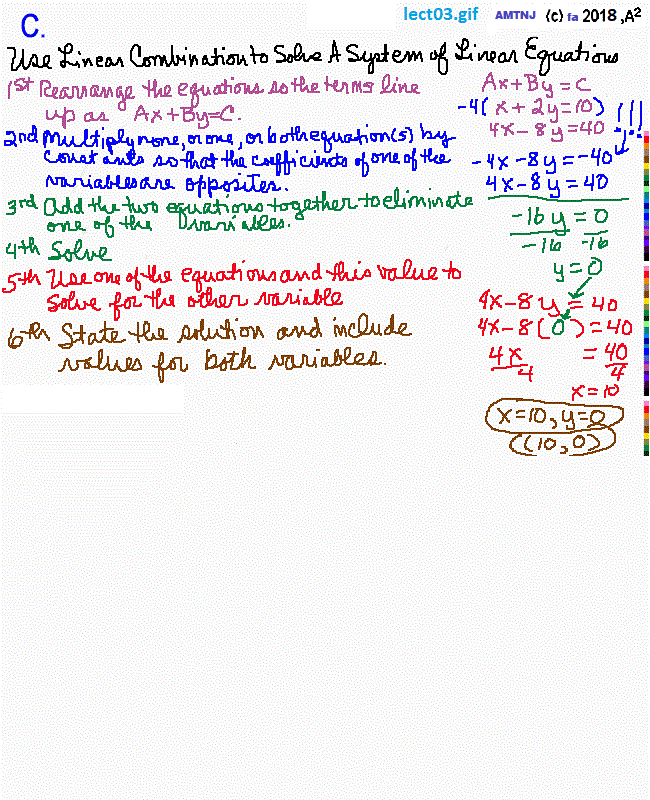 C.
lect03.gif AMTNJ (c) fa 2018 ,A²
Use Linear Combination to Solve A System of Linear Equations
1st Rearrange the equations so the terms line
up as Ax+By=C.
2nd Multiply none, or one, or both equation(s) by
constants so that the coefficients of one of the
variables are opposites.
3rd Add the two equations together to eliminate
one of the variables.
4th Solve
5th Use one of the equations and this value to
solve for the other variable
6th State the solution and include
values for both variables.
Ax+By=C
-4(x+2y=10)
4x-8y=40
-4x-8y=-40
4x-8y=40
-16y=0
-16 -16
y=0
4x-8y=40
4x-8(0)=40
4x =40
4 4
x=10
x=10, y=0
(10,0)